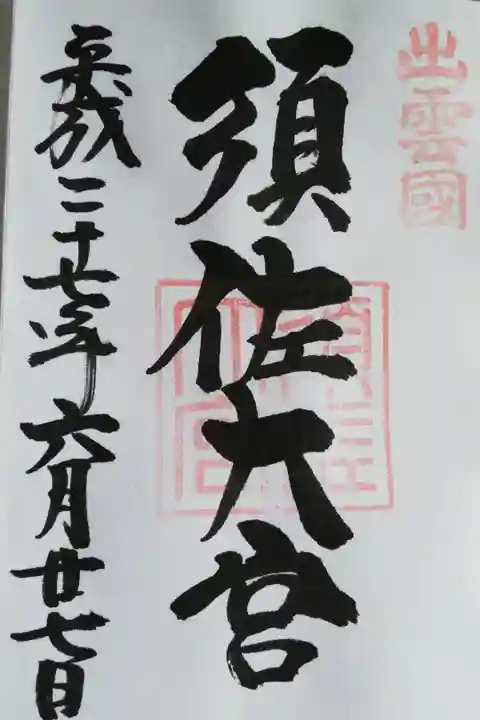 出雲國
須佐大宮
須佐大宮
平成二十七年六月廿七日